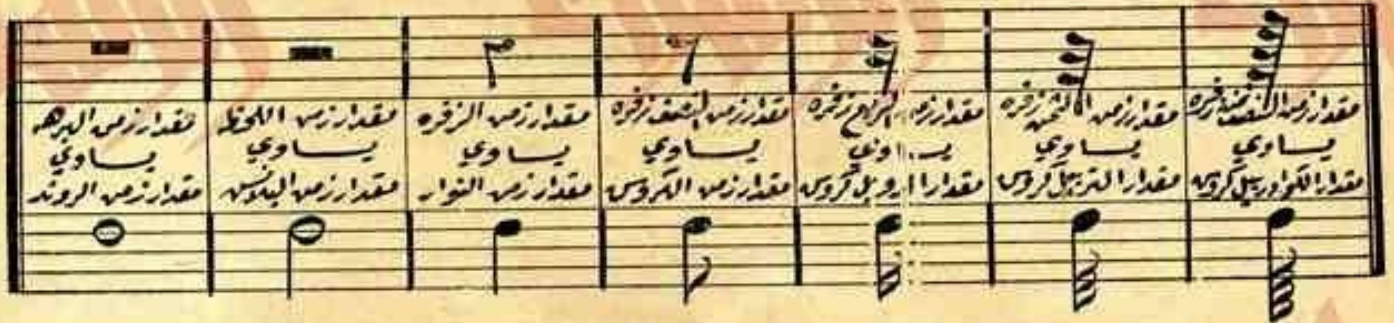 مقدار زمن البرهه
يساوي
مقدار زمن الروند
مقدار زمن اللحظه
يساوي
مقدار زمن البلانش
مقدار زمن الزفره
يساوي
مقدار زمن النوار
مقدار زمن النصف زفره
يساوي
مقدار زمن الكروس
مقدار زمن الربع زفره
يساوي
مقدار الدوبل كروس
مقدار زمن الثمن زفره
يساوي
مقدار التربيل كروس
مقدار زمن النصف ثمن زفره
يساوي
مقدار الكوادريبل كروس